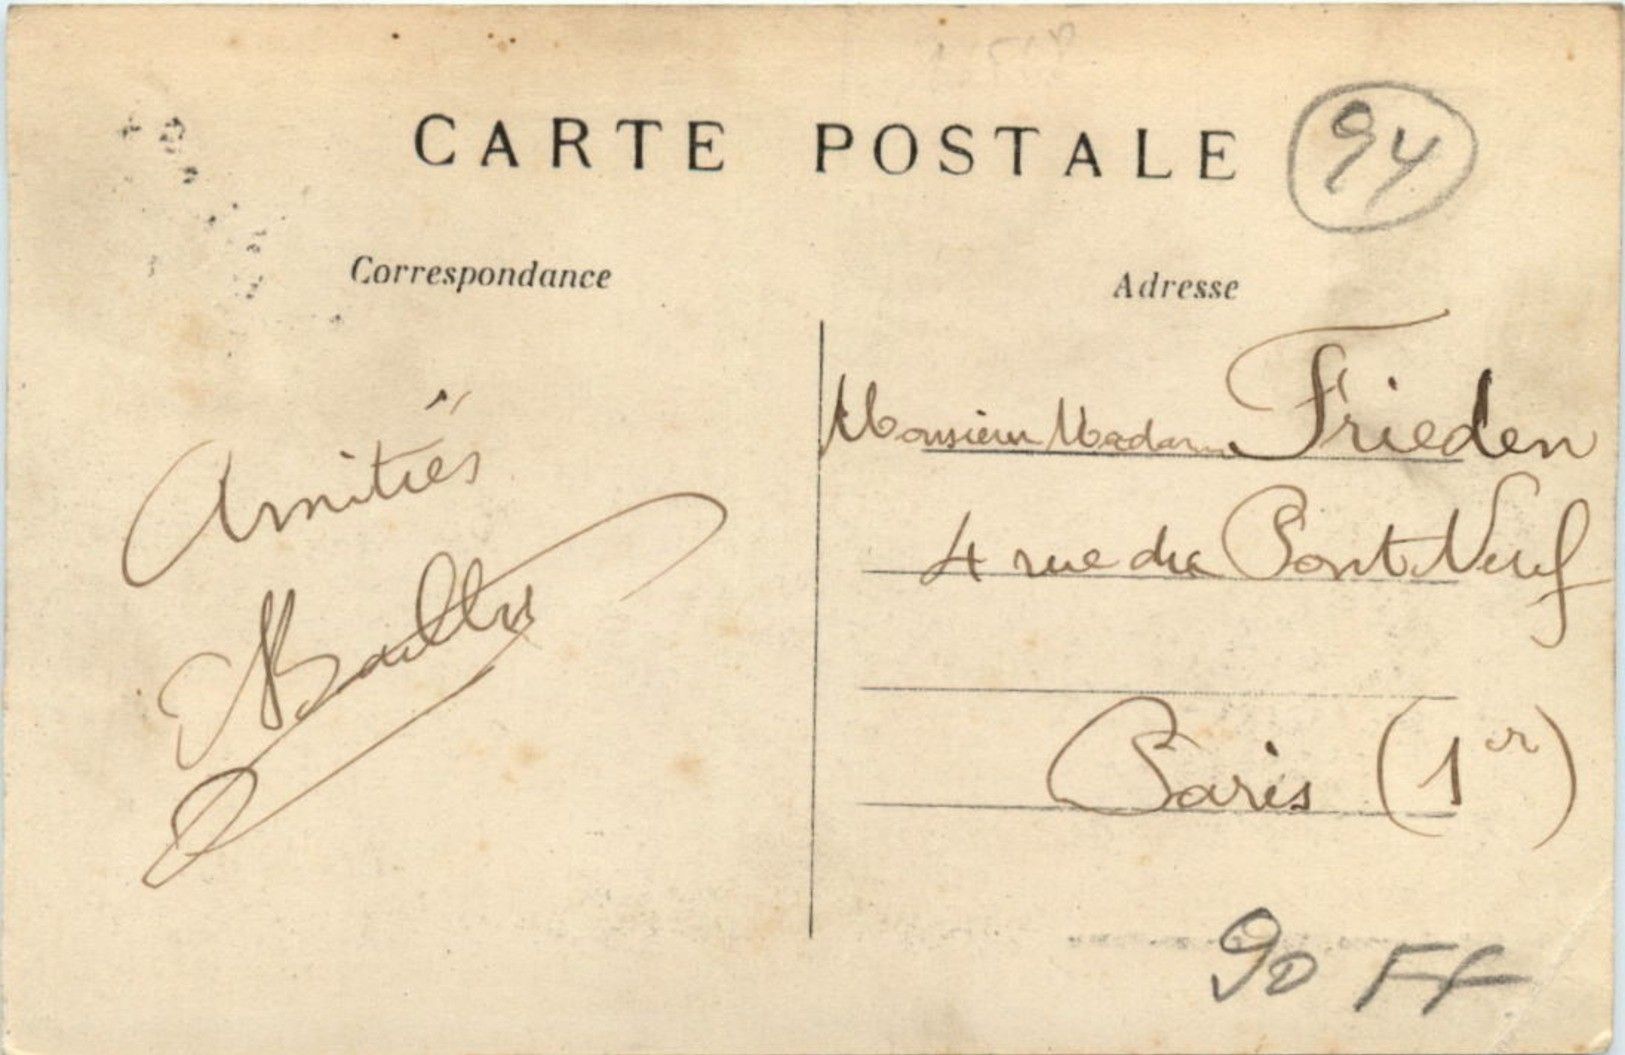 CARTE POSTALE
94
Correspondance
Adresse
Amitiés
Monsieur Madame Frieden
4 rue du Pont Neuf
Paris (1er)
90 FF